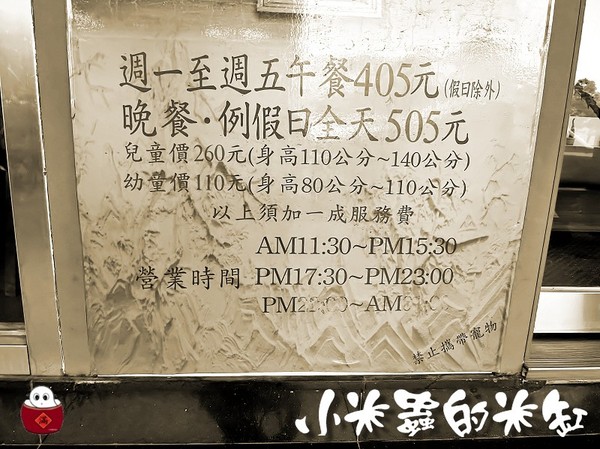 週一至週五午餐405元(假日除外)
晚餐·例假日全天505元
兒童價260元(身高110公分~140公分)
幼童價110元(身高80公分~110公分)
以上須加一成服務費
AM11:30~PM15:30
營業時間 PM17:30~PM23:00
~AM
禁止攜帶寵物
小米蟲的米缸